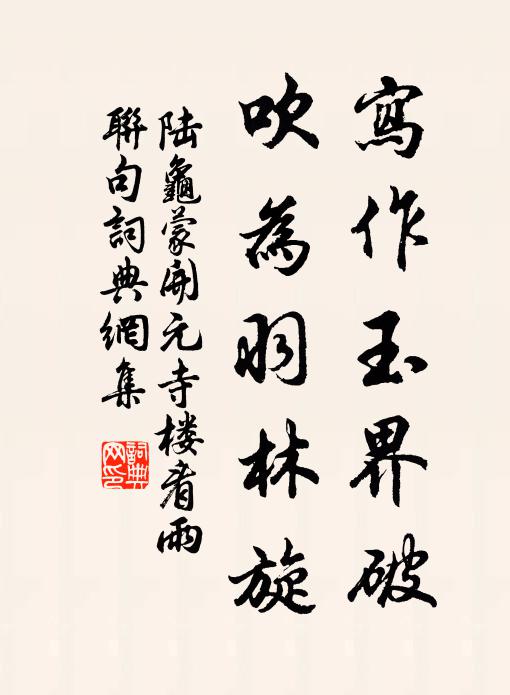 寫作玉界破
吹為羽林旋
陆龜蒙開元寺楼看雨
聯句詞典網集
詞典
网印